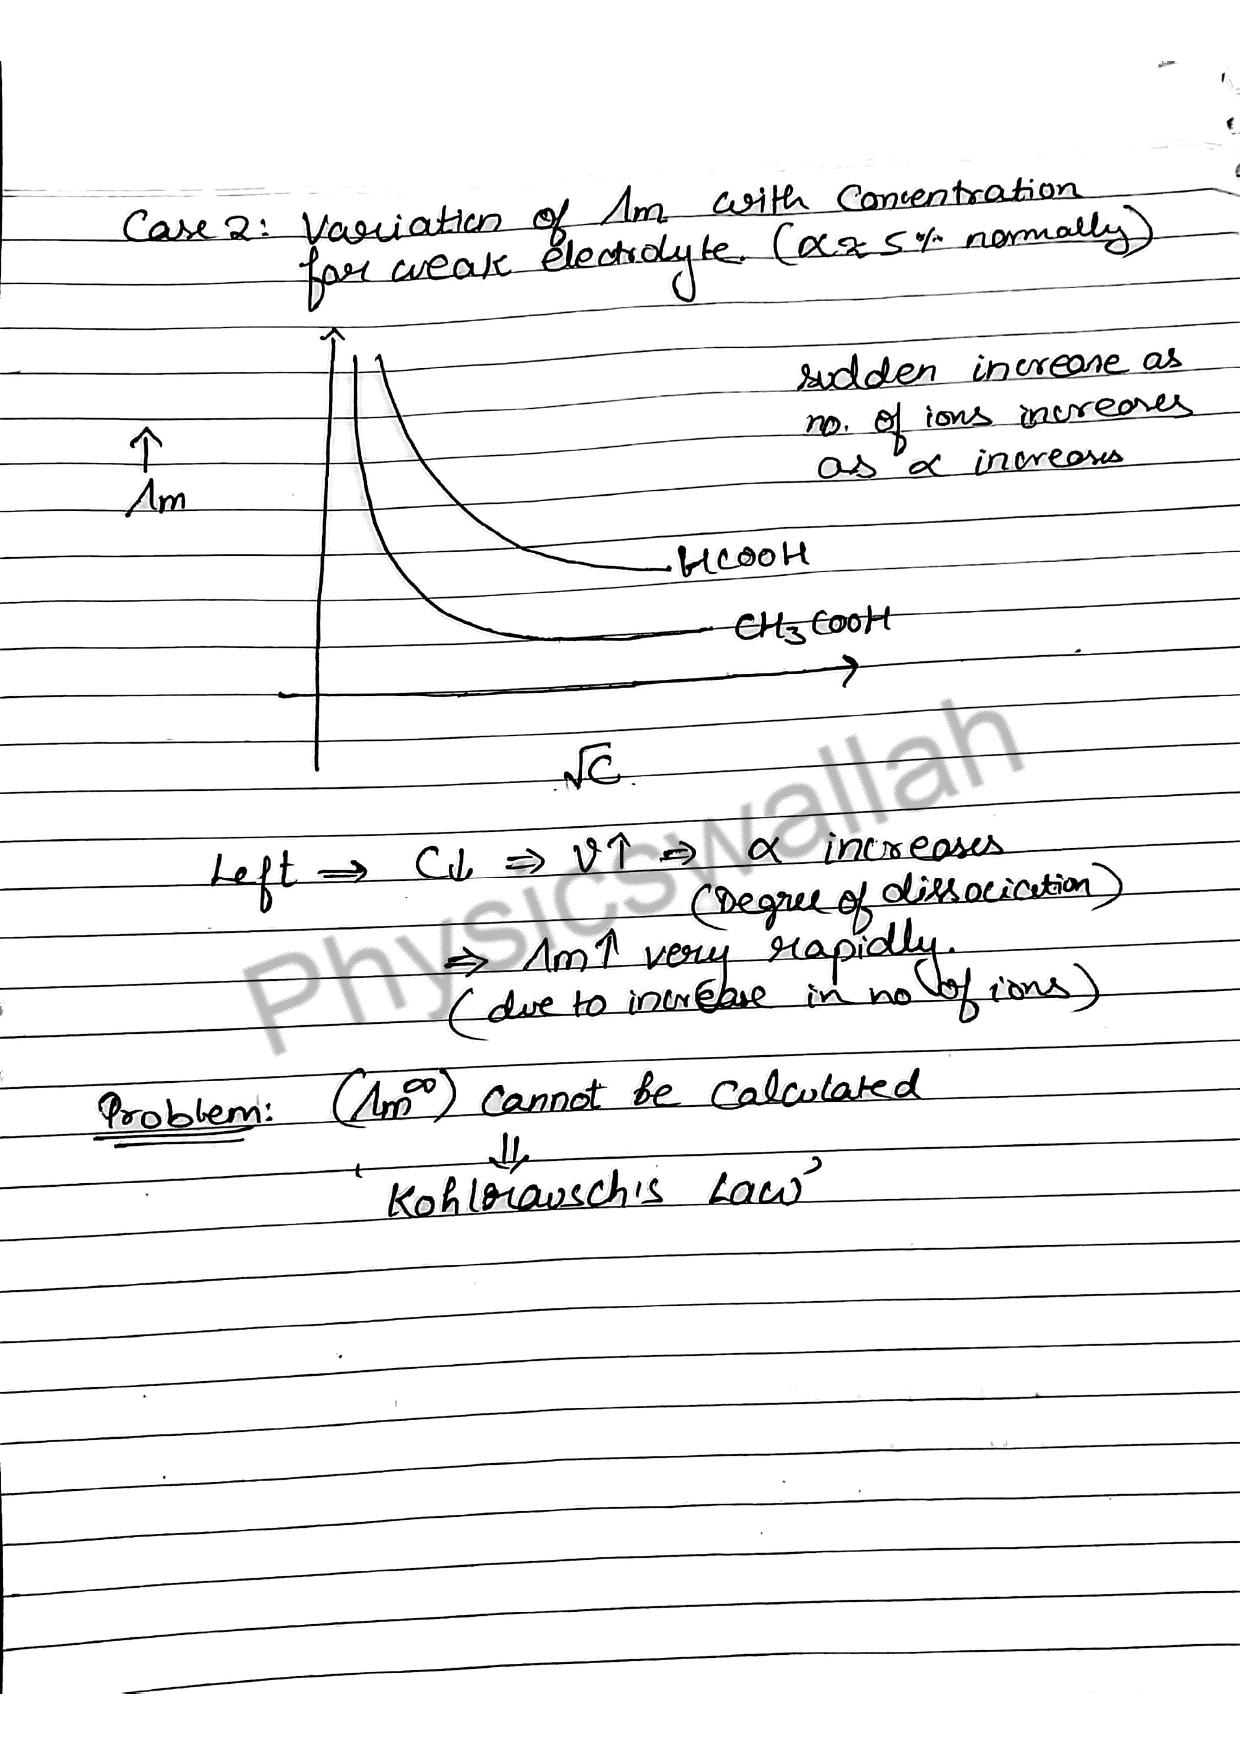 Case 2: Variation of Λm with Concentration
for weak electrolyte. (α ≈ 5% normally)
sudden increase as
no. of ions increases
as α increases
↑
Λm
HCOOH
CH3COOH
√C
Left ⇒ C↓ ⇒ V↑ ⇒ α increases
(Degree of dissocication)
⇒ Λm↑ very rapidly.
(due to increase in no of ions)
Problem: (Λm∞) cannot be calculated
⇓
'Kohlrausch's Law'
Physicswallah